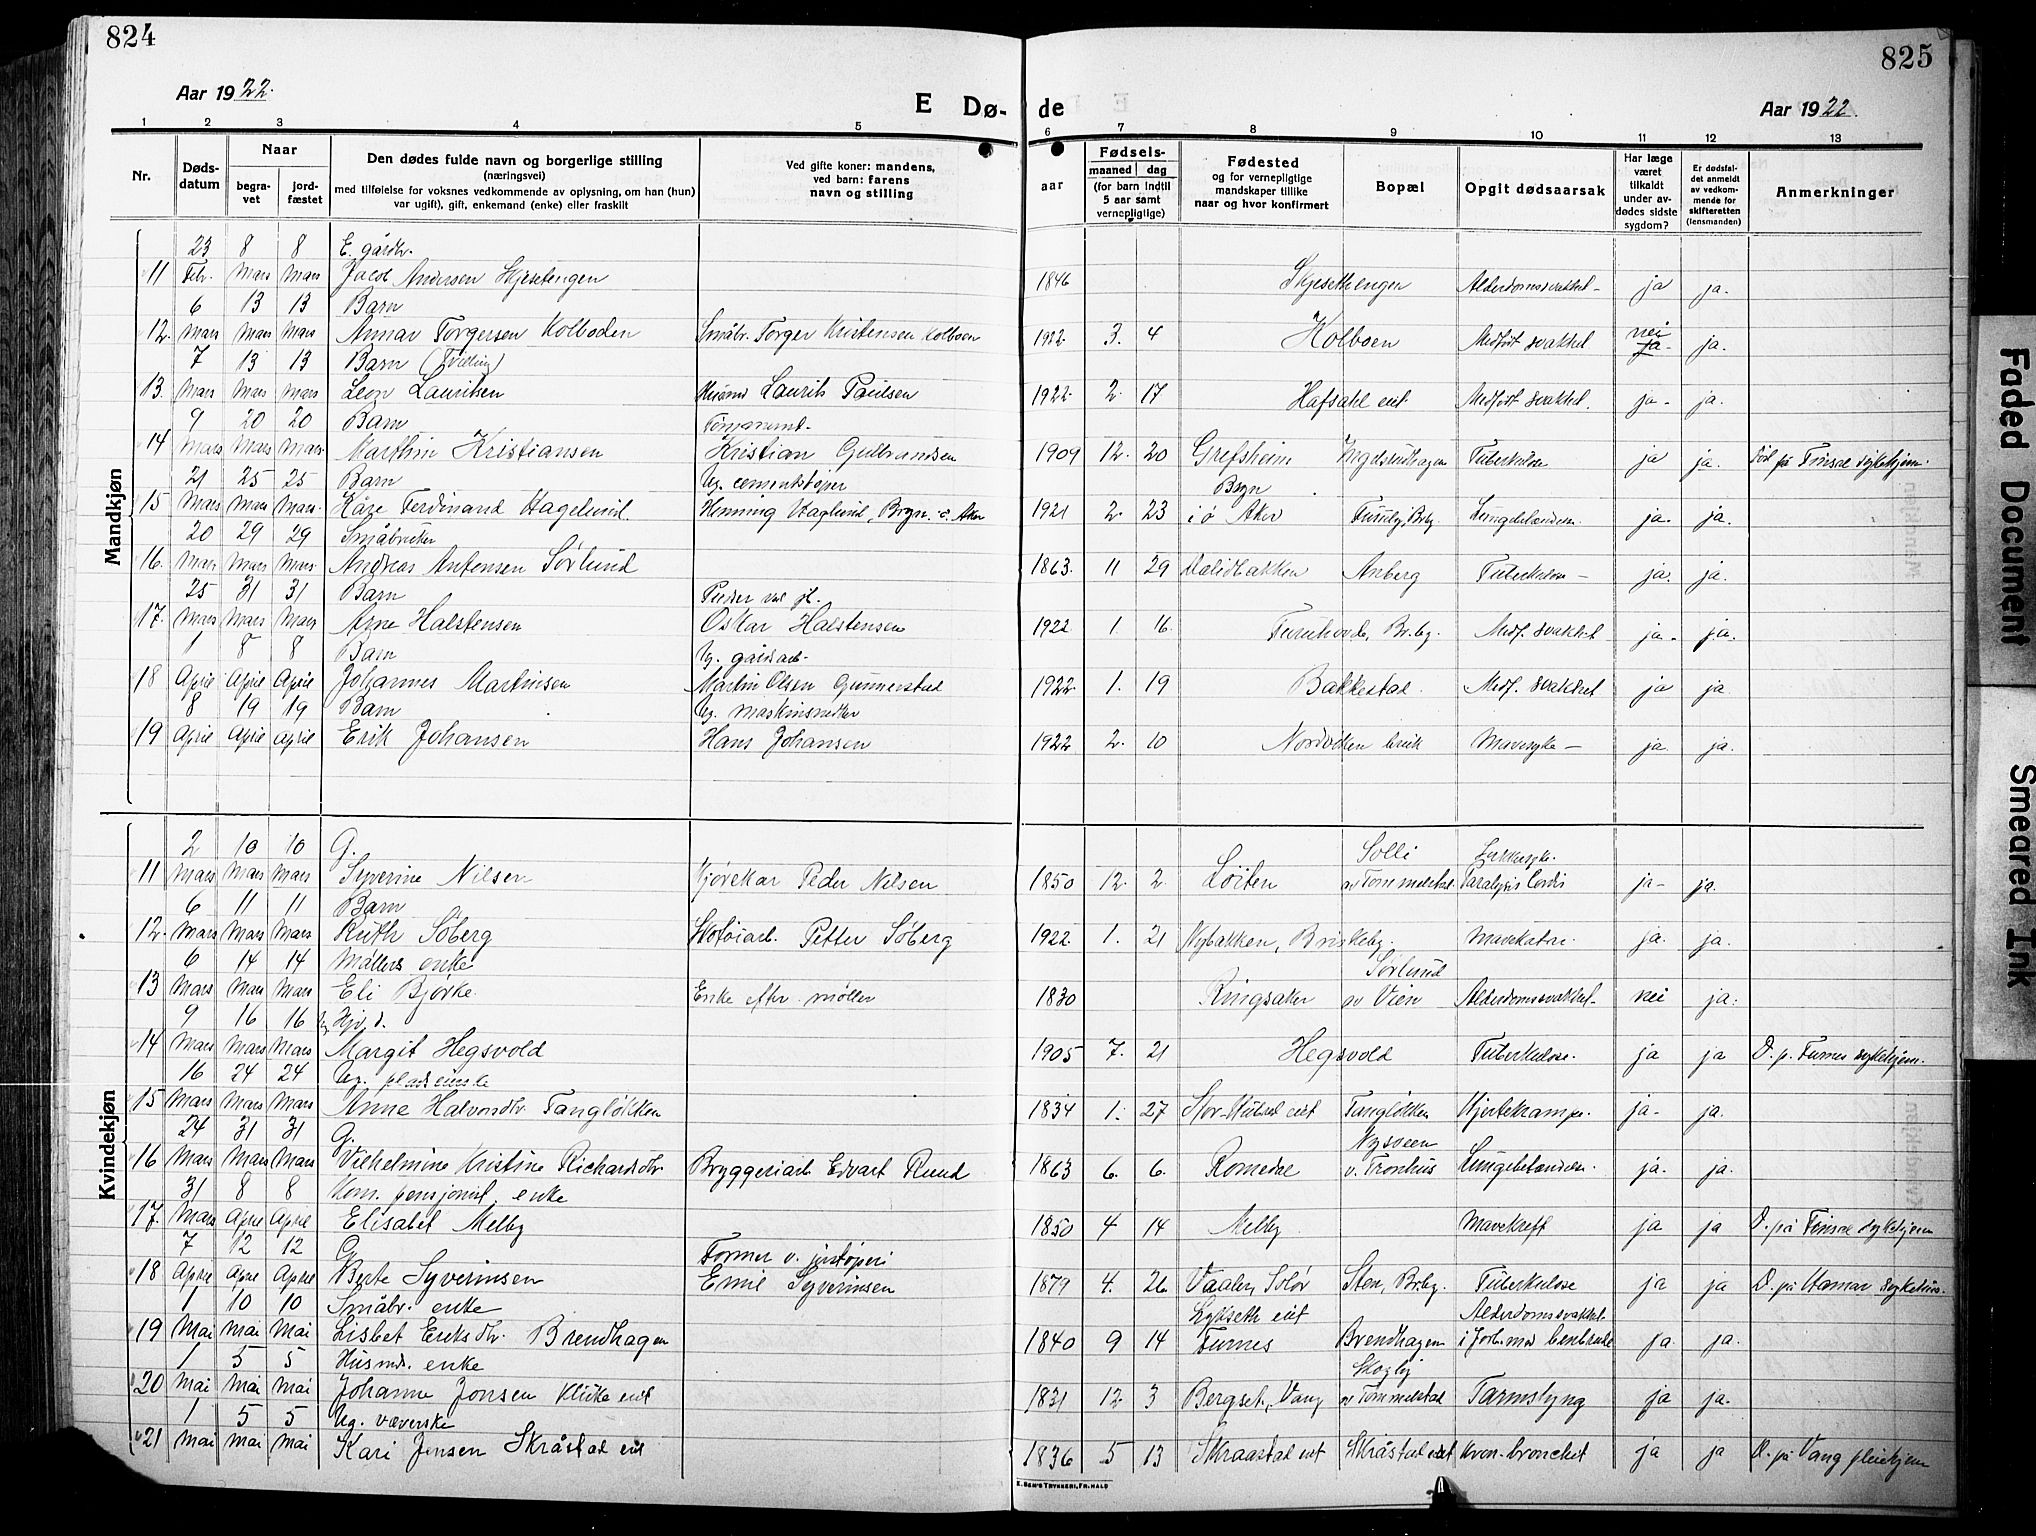 824
825
Aar 1922.
E Dø-
de
Aar 1922.
1 2 3 4 5 6 7 8 9 10 11 12 13
Nr.
Døds-
datum
Naar
begra-
vet
jord-
fæstet
Den dødes fulde navn og borgerlige stilling
(næringsvei)
med tilføielse for voksnes vedkommende av oplysning, om han (hun)
var ugift), gift, enkemand (enke) eller fraskilt
Ved gifte koner: mandens,
ved barn: farens
navn og stilling
aar
Fødsels-
maaned dag
(for barn indtil
5 aar samt
vernepligtige)
Fødested
og for vernepligtige
mandskaper tillike
naar og hvor konfirmert
Bopæl
Opgit dødsaarsak
Har læge
været
tilkaldt
under av-
dødes sidste
sygdom?
Er dødsfal-
det anmeldt
av vedkom-
mende for
skifteretten
(lensmanden)
Anmerkninger
Mandkjøn
23 8 8 E. gårdbr.
11 Febr. Mars Mars Jacob Andersen Skjesetengen 1846 Skjesethengen Alderdomssvakhet- ja ja.
6 13 13 Barn
12. Mars Mars Mars Annar Torgersen Kolboden Småbr. Torger Kristensen Kolboen 1922 3. 4 Kolboen Medfødt svakhet nei ja- ja.
7 13 13 Barn (Tvilling)
13. Mars Mars Mars Leon Lauritsen Husmd Laurits Paulsen 1922 2. 17 Hafsahl eiet. Medfødt svakhet. ja- ja.
9 20 20 Barn
14 Mars Mars Mars Marthin Kristiansen Kristian Gulbrandsen 1909 12. 20 Grefsheim Tuberkulose ja ja. Død på Finsal sykehjem.
21 25 25 Barn Ug. cementstøper Bryn
15 Mars Mars Mars. Kåre Ferdinand Hagelund. Henning Haglund, Bryn. ø. Aker 1921 2. 23 i ø Aker Lungebetændelse. ja. ja.
20 29 29 Småbruker
16. Mars Mars Mars. Andreas Antonsen Sørlund 1863. 11 29 Dalidbakken Anberg Tuberkulose- ja. ja.
25 31 31 Barn
17. Mars Mars Mars Arne Halstensen Oskar Halstensen 1922 1. 16 Furuhovde, Br.by. Medf. svakhet ja- ja.
1 8 8 Barn Ug. gårdsarb-
18 April April April Johannes Martinsen Martin Olsen Gunnerstad 1922. 1. 19 Bakkestad. Medf. svakhet ja ja
8 19 19 Barn Ug. maskinsnekker
19 April April April Erik Johansen Hans Johansen 1922 2. 10 Nordviken bruk Mavesyke- ja. ja.
Kvindekjøn
2 10 10 G. Solli Hjertesyke.
11 Mars Mars Mars Syverine Nilsen Kjørekar Peder Nilsen 1850 12. 2. Løiten av Tommelstad Paralysis Cordis ja- ja.
6 11 11 Barn
12. Mars Mars Mars Ruth Søberg Skotøiarb. Petter Søberg 1922. 1. 21 Nybakken, Briskeby. Mavekatar. ja. ja.
6 14 14 Møllers enke Sørlund
13 Mars Mars Mars Eli Bjørke. Enke efter møller 1830 Ringsaker av Vien Alderdomssvakhet- nei ja.
9 16 16 Ug. Hjv. d.
14 Mars Mars Mars Margit Hegsvold 1905 7. 21 Hegsvold Tuberkulose. ja ja D. p. Furnes sykehjem.
16 24 24 Ug. pladseierske
15 Mars Mars Mars Anne Halvorsdtr Tangløkken 1834 1. 27 Tangløkken Hjertekrampe. ja- ja.
24 31 31 G. Nysveen
16 Mars Mars Mars Vilhelmine Kristine Richardsdtr Bryggeriarb Edvart Ruud 1863 6. 6. Romedal v. Tronhus Lungebetændelse. ja. ja.
31 8 8 Kom. pensjonist. enke
17. Mars April April Elisabet Melby 1850 4 14 Melby Mavekræft ja ja D. på Finsal sykehjem
7 12 12 G Former v. jernstøperi
18 April April April Berte Syverinsen Emil Syverinsen 1879 4. 26 Vaaler, Solør Sten, Br.by. Tuberkulose ja ja D. på Hamar sykehus.
1 10 10 Småbr. enke Lykseth eiet Alderdomssvakhet
19 Mai Mai Mai Lisbet Eriksdtr. Brendhagen 1840 9 14 Furnes Brendhagen i forb. med benbrudd ja ja.
1 5 5 Husmds. enke Skogly
20 Mai Mai Mai Johanne Jonsen Klukeeiet 1831 12. 3 Bergset, Vang av Tommelstad Tarmslyng ja ja.
1 5 5 Ug. væverske
21 Mai Mai Mai Kari Jensen Skråstad eiet 1836 5 13 Skraastad eiet Skråstad eiet Kron. bronchit ja ja D. på Vang pleiehjem
E. SEM'S TRYKKERI, FR.HALD
Faded Document
Smeared Ink